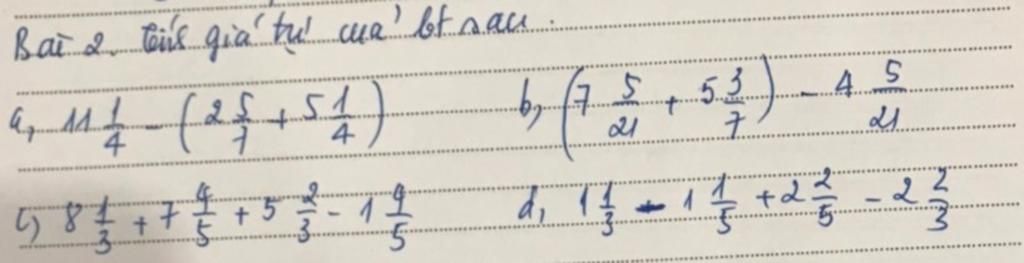 Bài 2. Tính giá trị của bt sau.
a, 11 1/4 - (2 5/7 + 5 1/4) b, (7 5/21 + 5 3/7) - 4 5/21
c) 8 1/3 + 7 4/5 + 5 2/3 - 1 4/5 d, 1 1/3 - 1 1/5 + 2 2/5 - 2 2/3